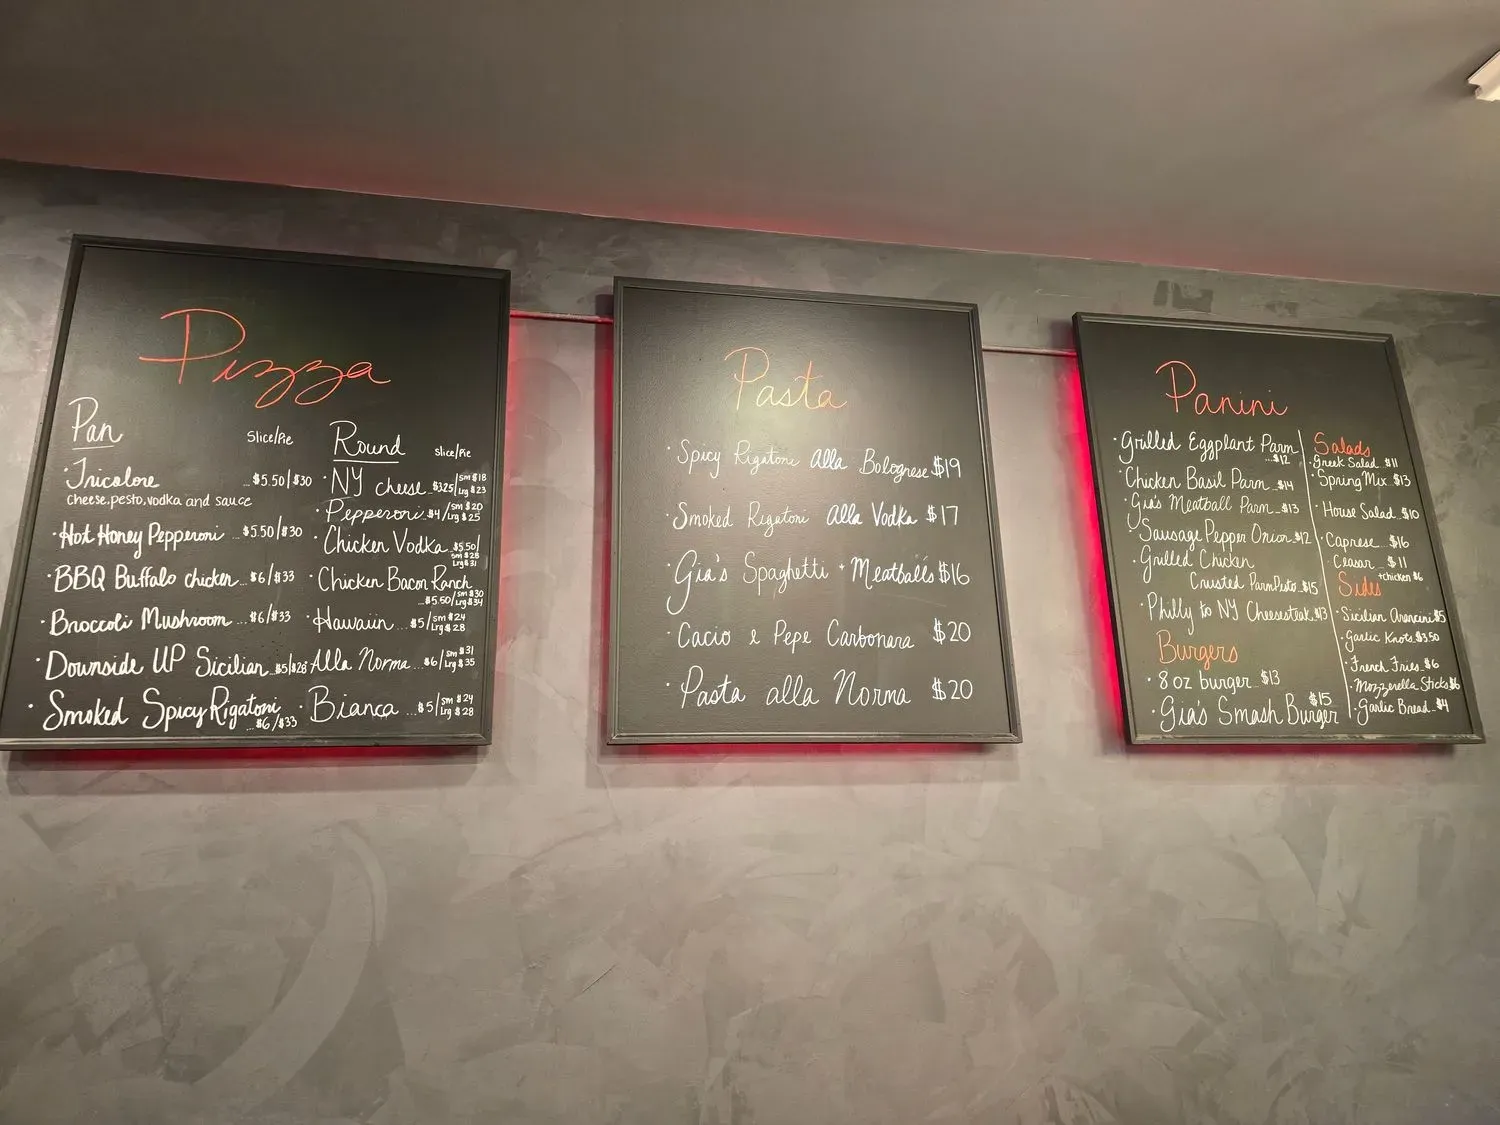 Pizza
Pan
Slice/Pie
Tricolore ...$5.50/$30
cheese, pesto, vodka and sauce
Hot Honey Pepperoni ...$5.50/$30
BBQ Buffalo chicken...$6/$33
Broccoli Mushroom...$6/$33
Downside UP Sicilian...$5/$28
Smoked Spicy Rigatoni
...$6/$33
Round
Slice/Pie
NY cheese...$3.25/sm $18
Lrg $23
Pepperoni $4/sm $20
Lrg $25
Chicken Vodka...$5.50/
sm $28
Lrg $31
Chicken Bacon Ranch
...$5.50/sm $30
Lrg $34
Hawaiin...$5/sm $24
Lrg $28
Alla Norma...$6/sm $31
Lrg $35
Bianca...$5/sm $24
Lrg $28
Pasta
Spicy Rigatoni Alla Bolognese $19
Smoked Rigatoni Alla Vodka $17
Gia's Spaghetti + Meatballs $16
Cacio e Pepe Carbonara $20
Pasta alla Norma $20
Panini
Grilled Eggplant Parm
...$12
Chicken Basil Parm...$14
Gia's Meatball Parm...$13
Sausage Pepper Onion..$12
Grilled Chicken
Crusted Parm Pesto..$15
Philly to NY Cheesesteak..$13
Burgers
8 oz burger...$13
Gia's Smash Burger $15
Salads
Greek Salad...$11
Spring Mix..$13
House Salad..$10
Caprese...$16
Ceasar...$11
+chicken $6
Sides
Sicilian Arancini $5
Garlic Knots $3.50
French Fries..$6
Mozzerella Sticks $6
Garlic Bread..$4